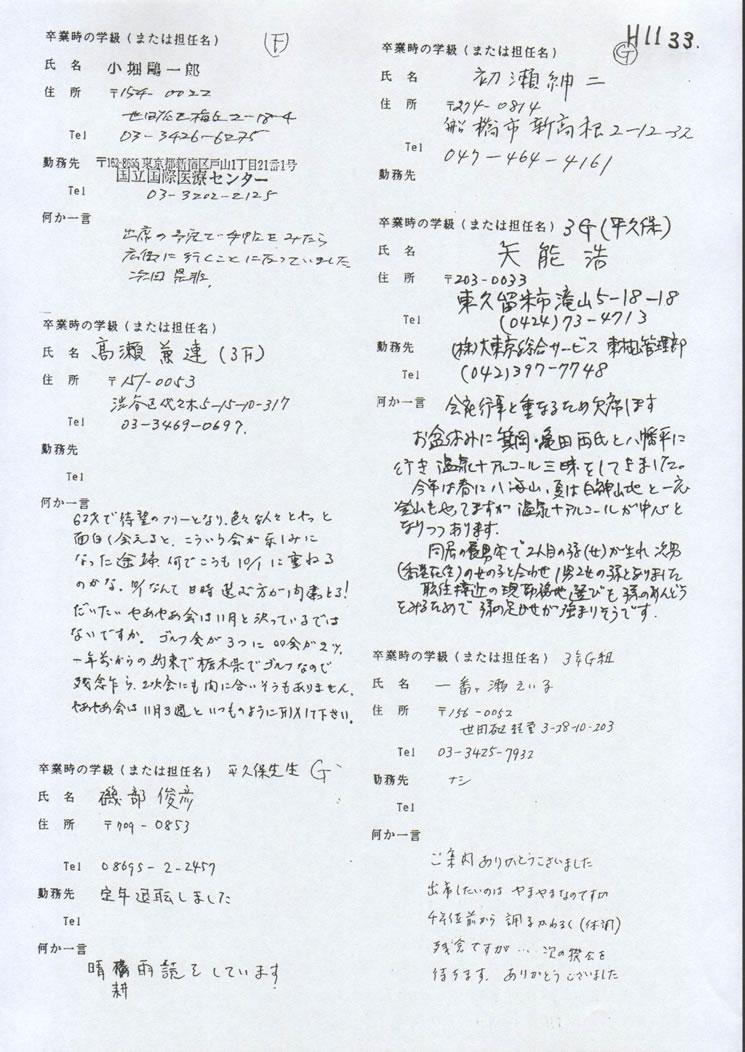 H11 33.
卒業時の学級（または担任名） F
氏 名 小堀鷗一郎
住 所 〒154-0022
世田谷区梅丘2-18-4
Tel 03-3426-6275
勤務先 〒162-8655 東京都新宿区戸山1丁目21番1号
国立国際医療センター
Tel 03-3202-2125
何か一言
出席の予定で手帳をみたら
広島に行くことになっていました
次回是非.
卒業時の学級（または担任名）
氏 名 高瀬兼連（3F）
住 所 〒151-0053
渋谷区代々木5-15-10-317
Tel 03-3469-0697.
勤務先
Tel
何か一言
62才で待望のフリーとなり、色々な人々とやっと
面白く会えると、こういう会が楽しみに
なった途端、何でこうも10/1に重ねる
のかな。10/1なんて日時選ぶ方が間違ってる!
だいたいやあやあ会は11月と決っているでは
ないですか。ゴルフ会が3つに
一年前からの約束で栃木県でゴルフなので
残念乍ら、2次会にも間に合いそうもありません.
やあやあ会は11月3週といつものように
卒業時の学級（または担任名） 平久保先生 G
氏 名 磯部俊彦
住 所 〒709-0853
Tel 08695-2-2457
勤務先 定年退転しました
Tel
何か一言
晴耕雨読をしています
卒業時の学級（または担任名） G
氏 名 初瀬紳二
住 所 〒274-0814
船橋市新高根2-12-32
Tel 047-464-4161
勤務先
卒業時の学級（または担任名） 3G（平久保）
氏 名 矢能浩
住 所 〒203-0033
東久留米市滝山5-18-18
Tel (0424)73-4713
勤務先 (株)大東京総合サービス 東村山管理部
Tel (042)397-7748
何か一言 会社行事と重なるため欠席します
お盆休みに箕岡・亀田両氏と八幡平に
行き温泉+アルコール三昧をしてきました。
今年は春に八海山、夏は白神山地と一応
登山もやってますが温泉+アルコールが中心と
なりつつあります.
同居の長男宅で2人目の孫(女)が生れ 次男
(香港在住)の女の子と合わせ1男2女の孫となりました
職住接近の現勤務地選びも孫のめんどう
をみるためで孫の足かせが強まりそうです.
卒業時の学級（または担任名） 3年G組
氏 名 一番ヶ瀬
住 所 〒156-0052
世田谷区経堂3-28-10-203
Tel 03-3425-7932
勤務先 ナシ
Tel
何か一言
ご案内ありがとうございました
出席したいのはやまやまなのですが
4年位前から調子がわるく（体調）
残念ですが… 次の機会を
待ちます. ありがとうございました